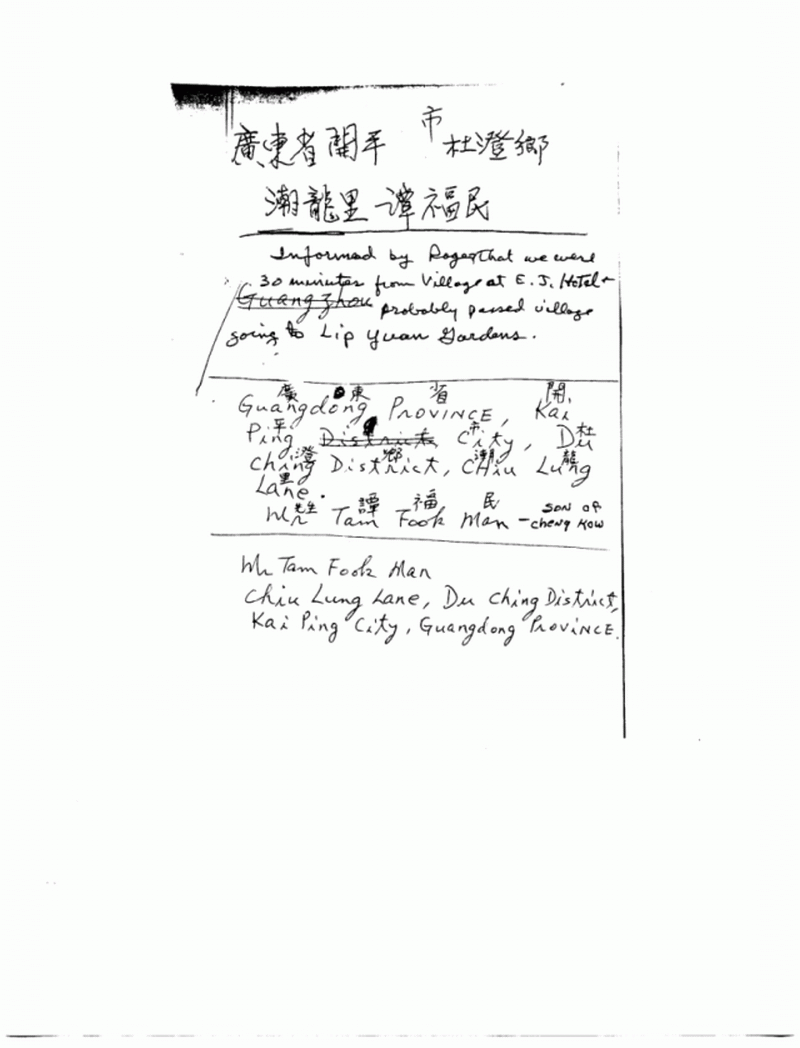 廣東省開平市杜澄鄉
潮龍里譚福民
Informed by Roger that we were
30 minutes from Village at E. J. Hotel
Guangzhou probably passed village
going to Lip Yuan Gardens.
廣 東 省 開
Guangdong PROVINCE, Kai
平 市 杜
Ping District City, Du
澄 鄉 潮 龍
Ching District, CHiu Lung
里
Lane.
先生 譚 福 民
Mr Tam Fook Man - SON OF CHENG KOW
Mr Tam Fook Man
Chiu Lung Lane, Du Ching District,
Kai Ping City, Guangdong PROVINCE.